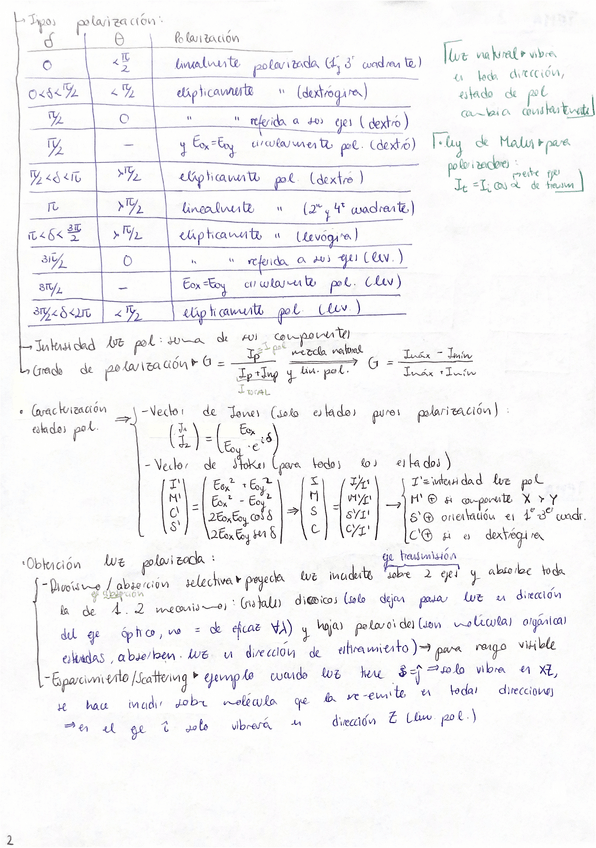 Tipos polarización:
δ θ Polarización
0 <π/2 linealmente polarizada (1º, 3º cuadrante)
0<δ<π/2 <π/2 elípticamente " (dextrógira)
π/2 0 " " referida a sus ejes (dextro)
π/2 — y Eox=Eoy circularmente pol. (dextro)
π/2<δ<π >π/2 elípticamente pol. (dextro)
π >π/2 linealmente " (2º y 4º cuadrante)
π<δ<3π/2 >π/2 elípticamente " (levógira)
3π/2 0 " " referida a sus ejes (lev.)
3π/2 — Eox=Eoy circularmente pol. (lev)
3π/2<δ<2π <π/2 elípticamente pol (lev)
luz natural ▸ vibra
en toda dirección,
estado de pol
cambia constantemente
• Ley de Malus ▸ para
polarizadores:
entre ejes
It = Ii cos α de transm
→ Intensidad luz pol: suma de sus componentes
→ Grado de polarización ▸ G = Ip / (Ip + Inp) mezcla natural y lin. pol. → G = (Imáx − Imín) / (Imáx + Imín)
I pol
I TOTAL
• Caracterización estados pol. ⇒ – Vector de Jones (solo estados puros polarización):
(J1 J2) = (Eox Eoy·e^iδ)
– Vector de Stokes (para todos los estados)
(I' M' C' S') = (Eox² + Eoy² Eox² − Eoy² 2EoxEoy cos δ 2EoxEoy sen δ) ⇒ (I M S C) = (I'/I' M'/I' S'/I' C'/I') →
I' = intensidad luz pol
M' ⊕ si componente X > Y
S' ⊕ orientación en 1er 3er cuadr.
C' ⊕ si es dextrógira
• Obtención luz polarizada:
eje transmisión
– Dicroísmo / absorción selectiva ▸ proyecta luz incidente sobre 2 ejes y absorbe toda
la de 1. 2 mecanismos: cristales dicroicos (solo dejan pasar luz en dirección
del eje óptico, no = de eficaz ∀λ) y hojas polaroides (son moléculas orgánicas
estiradas, absorben luz en dirección de estiramiento) → para rango visible
– Esparcimiento/Scattering ▸ ejemplo cuando luz tiene ŝ=ĵ ⇒ solo vibra en XZ,
se hace incidir sobre molécula que la re-emite en todas direcciones
⇒ en el eje î solo vibrará en dirección Z (lin pol.)
2